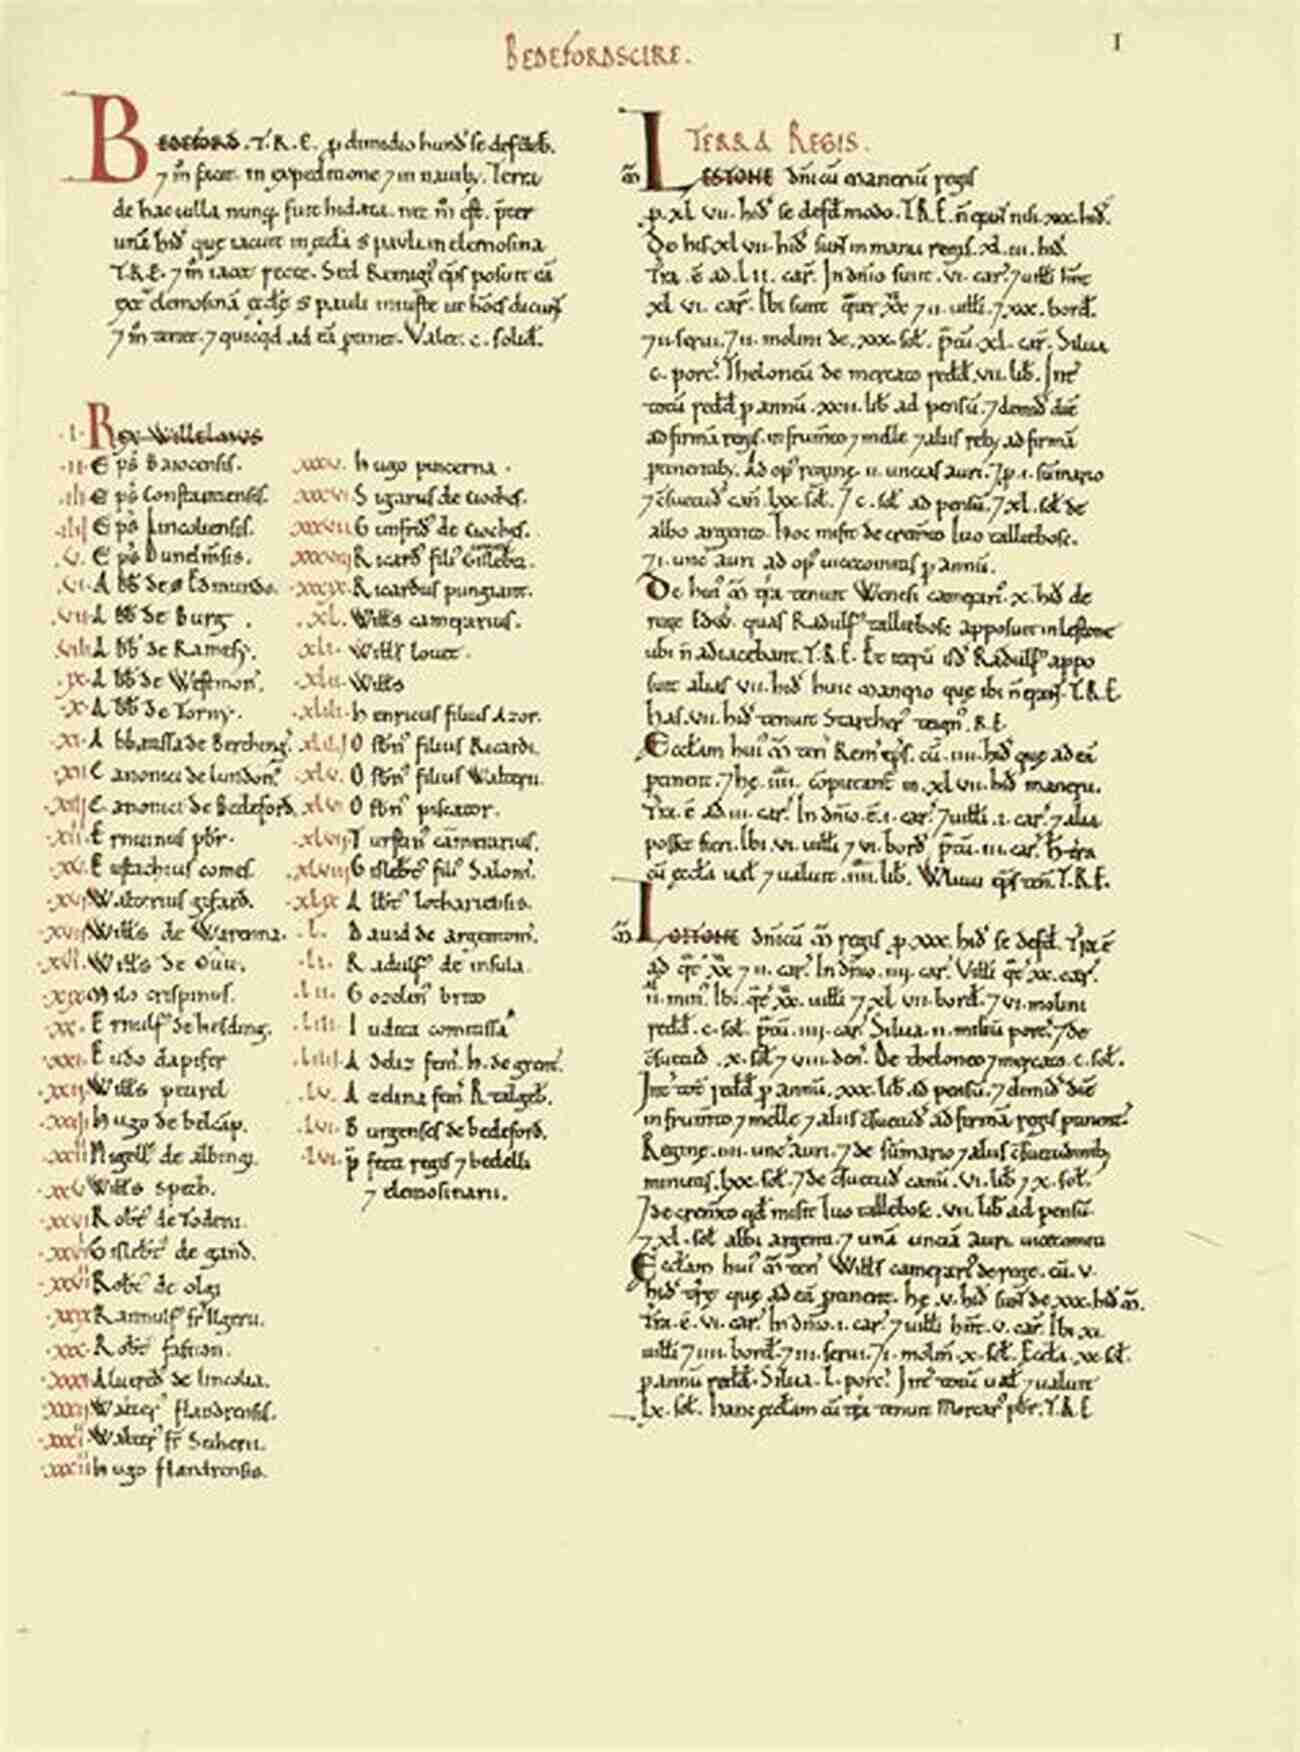 BEDEFORDSCIRE.
I
BEDEFORD. T.R.E. ꝑ dimidio hund' se defdeb'.
⁊ m̄ facit in expeditione ⁊ in nauib;. Terra
de hac uilla nunq̄ fuit hidata. nec m̄ est. p̄ter
unā hid' que iacuit in eccła S pauli in elemosina
T.R.E. ⁊ m̄ iacet recte. Sed Remigi' ep̄s posuit eā
ext' elemosinā eccłę S pauli iniuste ut hōes dicunt
⁊ m̄ tenet. ⁊ quicq'd ad eā ꝑtinet. Valet. c. solid'.
.I. Rex Willelmus
.II. Ep̄s Baiocensis.
.III. Ep̄s Constantiensis.
.IIII. Ep̄s Lincoliensis.
.V. Ep̄s Dunelm̄sis.
.VI. Abb' de S Edmundo.
.VII. Abb' de Burg.
.VIII. Abb' de Ramesy.
.IX. Abb' de Westmon'.
.X. Abb' de Torny.
.XI. Abbatissa de Berching'.
.XII. Canonici de Lundon'.
.XIII. Canonici de Bedeford.
Ernuinus pb̄r.
.XV. Eustachius comes.
.XVI. Walterius gifard.
.XVII. Wiłłs de Warenna.
.XVIII. Wiłłs de Ou.
.XIX. Milo crispinus.
.XX. Ernulf' de hesding.
.XXI. Eudo dapifer
.XXII. Wiłłs peurel
.XXIII. Hugo de belcāp.
.XXIIII. Nigell' de albingi.
.XXV. Wiłłs spech.
.XXVI. Robt' de Todeni.
.XXVII. Gislebt' de gand.
.XXVIII. Robt' de olgi
.XXIX. Rannulf' fr̄ Ilgerii.
.XXX. Robt' fafiton.
.XXXI. Alured' de lincolia.
.XXXII. Walter' flandrensis.
.XXXIII. Walter' fr̄ Seiherii.
.XXXIIII. Hugo flandrensis.
.XXXV. Hugo pincerna.
.XXXVI. Sigarus de cioches.
.XXXVII. Gunfrid' de cioches.
.XXXVIII. Ricard' fili' Gisleb'ti.
.XXXIX. Ricardus pungiant.
.XL. Wiłłs camerarius.
.XLI. Wiłłs louet.
.XLII. Wiłłs
.XLIII. Henricus filius Azor.
.XLIIII. Osbn' filius Ricardi.
.XLV. Osbn' filius Walterii.
.XLVI. Osbn' piscator.
.XLVII. Turstin' camerarius.
.XLVIII. Gislebt' fili' Salom'.
.XLIX. Albt' lothariensis.
.L. Dauid de argentom'.
.LI. Radulf' de insula.
.LII. Gozelin' brito
.LIII. Iudita comitissa
.LIIII. Adeliz fem' H. de grent'.
.LV. Azelina fem' R. talgeb'.
.LVI. Burgenses de bedeford.
.LVII. p̄fecti regis ⁊ bedelli
⁊ elemosinarii.
TERRA REGIS.
m̄ LESTONE dn̄icū manerium regis
ꝑ. xl. vii. hid' se defd' modo. T.R.E. n̄ erant nisi. xxx. hid'.
De his. xl. vii. hid' sunt in manu regis. xl. iii. hid'
Tra. ē ad. L II. car'. In dn̄io sunt. vi. car'. ⁊ uiłłi hn̄t
xl. vi. car'. Ibi sunt quat' xx ⁊ ii. uiłłi. ⁊ xxx. bord'.
⁊ ii. serui. ⁊ ii. molini de. xxx. soł. p̄tū. xl. car'. Silua
c. porc'. Theloneū de mercato redd'. vii. lib'. Int'
totū redd' ꝑ annū. xxii. lib' ad pensū. ⁊ dimid' diē
ad firmā regis. in frum̄to ⁊ melle ⁊ aliis reb; ad firmā
ꝑtinentib;. Ad op' regine. ii. uncias auri. ⁊ ꝑ. i. sūmario
⁊ c̄suetud' can̄. lxx. soł. ⁊ c. soł ad pensū. ⁊ xl. soł de
albo argento. Hoc misit de crem̄to Iuo taillebosc.
⁊ i. unc' auri ad op' uicecomitis ꝑ annū.
De hui' m̄ t'ra tenuit Wenesi camerari'. x. hid' de
rege Edw'. quas Radulf' taillebosc apposuit in lestone
ubi n̄ adiacebant. T.R.E. Et iterū isd' Radulf' appo
suit alias. vii. hid' huic manerio que ibi n̄ erant. T.R.E
has. vii. hid' tenuit Starcher' teign'. R.E.
Eccłam hui' m̄ ten' Remi' ep̄s. cū. iiii. hid' que ad eā
ꝑtinent. ⁊ hę. iiii. cōputant' in. xl vii. hid' manerii.
Tra. ē ad iii. car'. In dn̄io. ē. i. car'. ⁊ uiłłi. i. car'. ⁊ alia
posset fieri. Ibi. vi. uiłłi ⁊ vi. bord'. p̄tū. iii. car'. H tra
cū eccła uał ⁊ ualuit. iiii. lib'. Wluui ep̄s ten'. T.R.E.
m̄ LOITONE dn̄icū m̄ regis ꝑ. xxx. hid' se defd'. Tra ē
ad q̄t' xx ⁊ ii. car'. In dn̄io. iiii. car'. Viłłi q̄t' xx. car'.
ii. min'. Ibi. q̄t' xx. uiłłi ⁊ xl vii. bord'. ⁊ vi. molini
redd'. c. soł. p̄tū. iiii. car'. Silua. ii. milium porc'. ⁊ de
c̄suetud'. x. soł ⁊ viii. den'. De theloneo ⁊ mercato. c. soł.
Int' tot' redd' ꝑ annū. xxx. lib. ad pensū. ⁊ dimid' diē
in frum̄to ⁊ melle ⁊ aliis c̄suetud' ad firmā regis ꝑtinent'.
Regine. iiii. unc' auri. ⁊ de sūmario ⁊ aliis c̄suetudinib;
minutis. lxx. soł. ⁊ de c̄suetud' canū. vi. lib' ⁊ x. soł.
⁊ de crem̄to q'd misit Iuo taillebosc. vii. lib' ad pensū.
⁊ xl. soł albi argenti. ⁊ unā unciā auri uicecomiti
Eccłam hui' m̄ ten' Wiłłs camerari' de rege. cū. v.
hid' tr̄ę que ad eā ꝑtinent. hę. v. hid' sunt de xxx. hid' m̄.
Tra. ē. vi. car'. In dn̄io. i. car'. ⁊ uiłłi hn̄t. v. car'. Ibi xi.
uiłłi ⁊ iiii. bord'. ⁊ iii. serui. ⁊ i. molin'. x. soł. Eccła. xx. soł.
ꝑ annū redd'. Silua. L. porc'. Int' totū uał ⁊ ualuit
lx. soł. Hanc eccłam cū t'ra tenuit Morcar' pb̄r. T.R.E